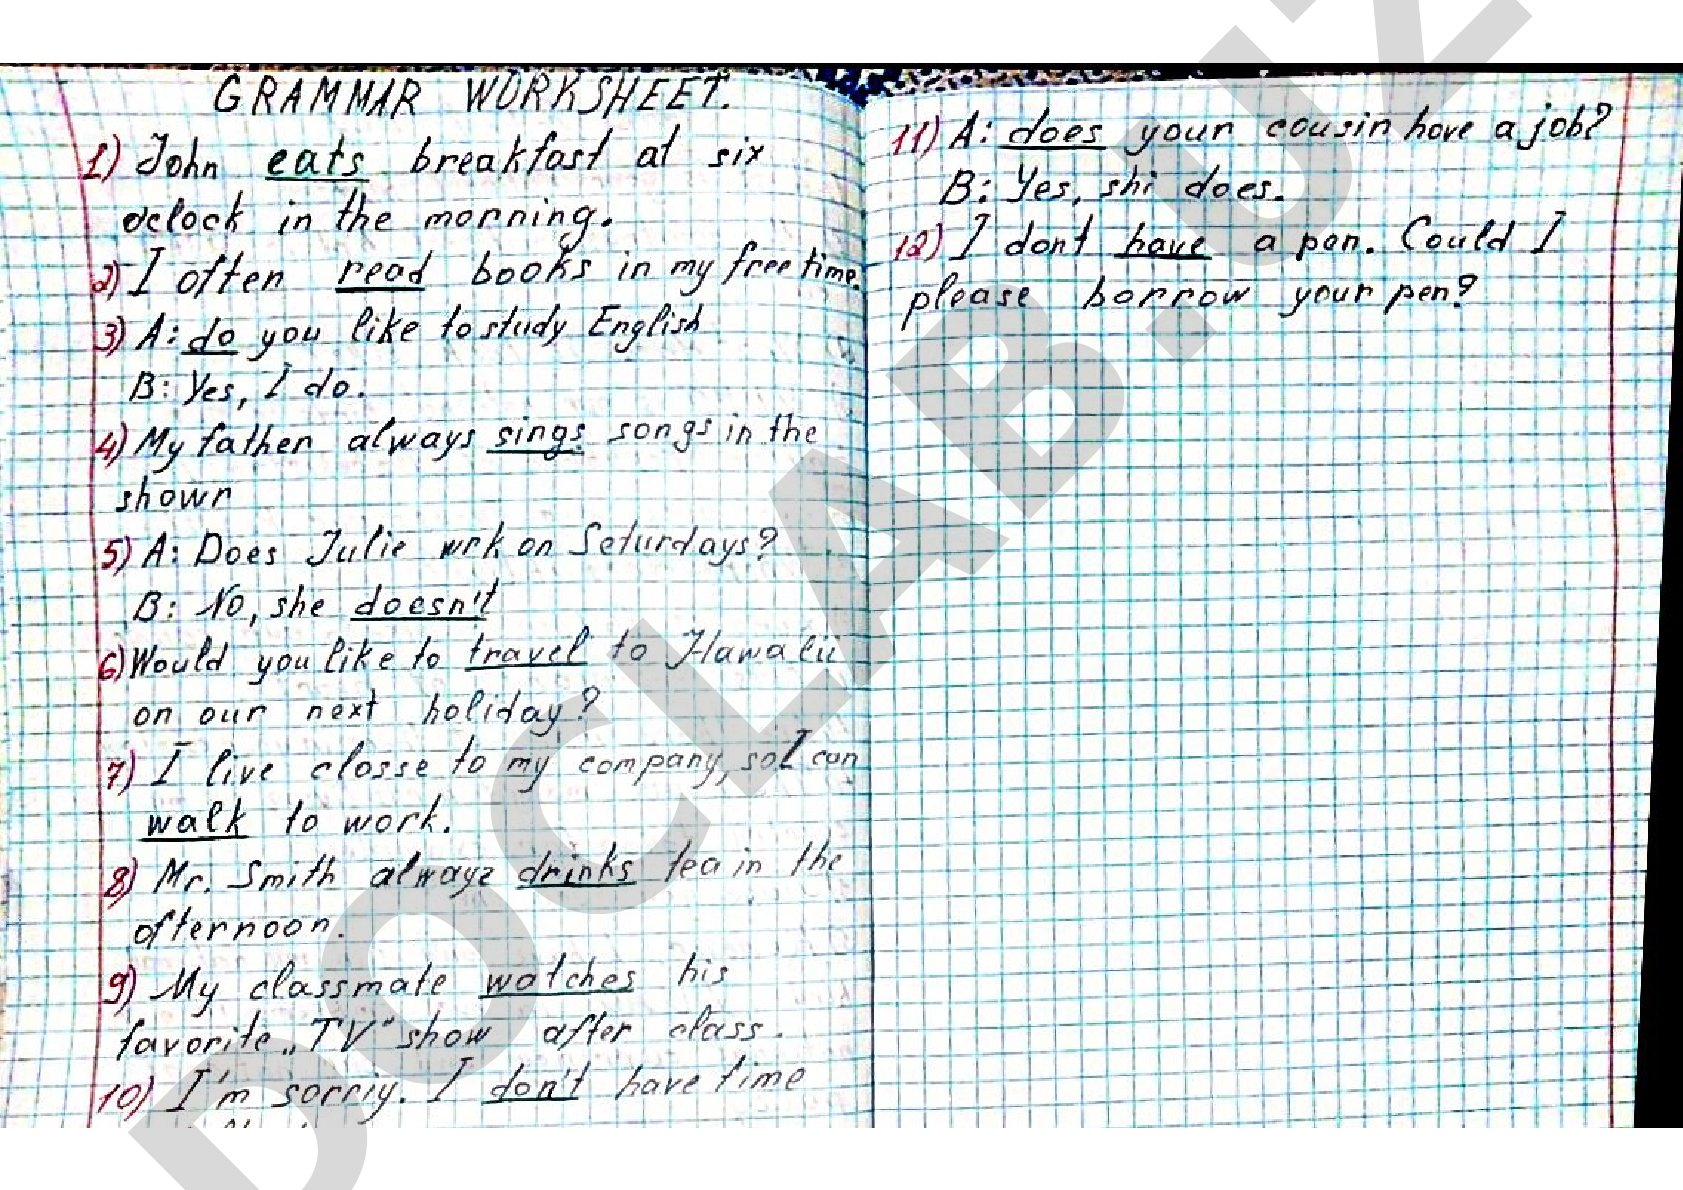 GRAMMAR WORKSHEET.
1) John eats breakfast at six
oclock in the morning.
2) I often read books in my free time.
3) A: do you like to study English
B: Yes, I do.
4) My father always sings songs in the
showr
5) A: Does Julie wrk on Seturdays?
B: No, she doesn't
6) Would you like to travel to Hawalii
on our next holiday?
7) I live closse to my company, so I can
walk to work.
8) Mr. Smith alwayz drinks tea in the
afternoon.
9) My classmate watches his
favorite „TV“ show after class.
10) I'm sorriy. I don't have time
11) A: does your cousin have a job?
B: Yes, shi does.
12) I dont have a pan. Could I
please borrow your pen?
DOCLAB.UZ